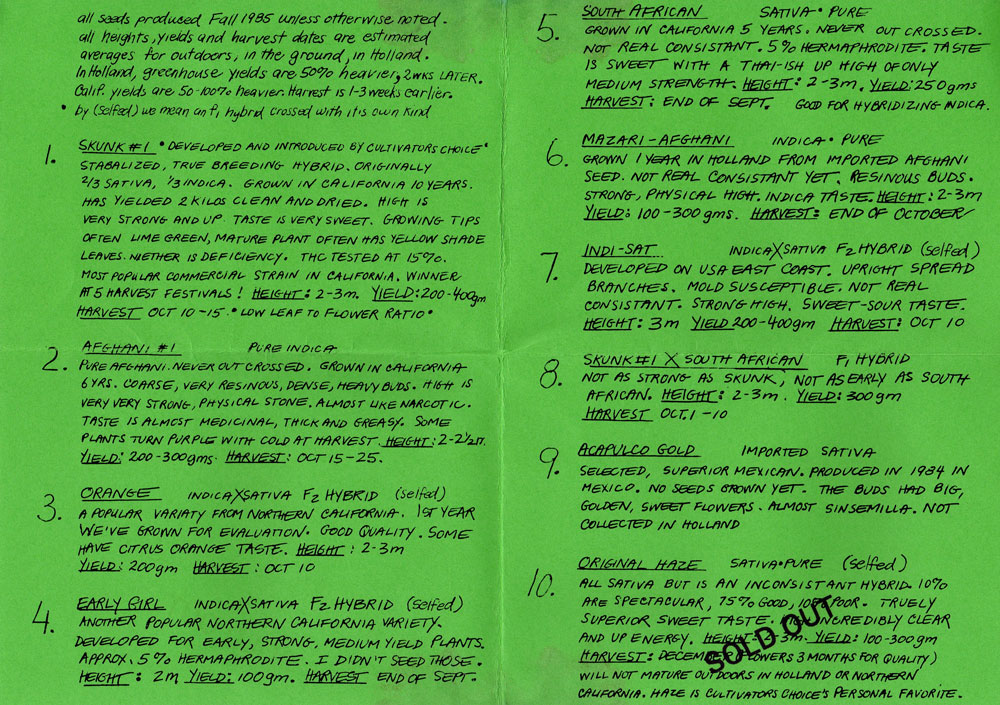 all seeds produced Fall 1985 unless otherwise noted.
all heights, yields and harvest dates are estimated
averages for outdoors, in the ground, in Holland.
In Holland, greenhouse yields are 50% heavier, 2 wks LATER.
Calif. yields are 50-100% heavier. Harvest is 1-3 weeks earlier.
• by (selfed) we mean an F1 hybrid crossed with it's own kind
1. SKUNK #1 • DEVELOPED AND INTRODUCED BY CULTIVATORS CHOICE •
STABALIZED, TRUE BREEDING HYBRID. ORIGINALLY
2/3 SATIVA, 1/3 INDICA. GROWN IN CALIFORNIA 10 YEARS.
HAS YIELDED 2 KILOS CLEAN AND DRIED. HIGH IS
VERY STRONG AND UP. TASTE IS VERY SWEET. GROWING TIPS
OFTEN LIME GREEN, MATURE PLANT OFTEN HAS YELLOW SHADE
LEAVES. NIETHER IS DEFICIENCY. THC TESTED AT 15%.
MOST POPULAR COMMERCIAL STRAIN IN CALIFORNIA. WINNER
AT 5 HARVEST FESTIVALS! HEIGHT: 2-3m. YIELD: 200-400gm
HARVEST OCT 10-15. • LOW LEAF TO FLOWER RATIO •
2. AFGHANI #1 PURE INDICA
PURE AFGHANI. NEVER OUT CROSSED. GROWN IN CALIFORNIA
6 YRS. COARSE, VERY RESINOUS, DENSE, HEAVY BUDS. HIGH IS
VERY VERY STRONG, PHYSICAL STONE. ALMOST LIKE NARCOTIC.
TASTE IS ALMOST MEDICINAL, THICK AND GREASY. SOME
PLANTS TURN PURPLE WITH COLD AT HARVEST. HEIGHT: 2-2½m.
YIELD: 200-300gms. HARVEST: OCT 15-25.
3. ORANGE INDICA X SATIVA F2 HYBRID (selfed)
A POPULAR VARIATY FROM NORTHERN CALIFORNIA. 1ST YEAR
WE'VE GROWN FOR EVALUATION. GOOD QUALITY. SOME
HAVE CITRUS ORANGE TASTE. HEIGHT: 2-3m
YIELD: 200gm HARVEST: OCT 10
4. EARLY GIRL INDICA X SATIVA F2 HYBRID (selfed)
ANOTHER POPULAR NORTHERN CALIFORNIA VARIETY.
DEVELOPED FOR EARLY, STRONG, MEDIUM YIELD PLANTS.
APPROX. 5% HERMAPHRODITE. I DIDN'T SEED THOSE.
HEIGHT: 2m YIELD: 100gm. HARVEST END OF SEPT.
5. SOUTH AFRICAN SATIVA • PURE
GROWN IN CALIFORNIA 5 YEARS. NEVER OUT CROSSED.
NOT REAL CONSISTANT. 5% HERMAPHRODITE. TASTE
IS SWEET WITH A THAI-ISH UP HIGH OF ONLY
MEDIUM STRENGTH. HEIGHT: 2-3m. YIELD: 250gms
HARVEST: END OF SEPT. GOOD FOR HYBRIDIZING INDICA.
6. MAZARI-AFGHANI INDICA • PURE
GROWN 1 YEAR IN HOLLAND FROM IMPORTED AFGHANI
SEED. NOT REAL CONSISTANT YET. RESINOUS BUDS.
STRONG, PHYSICAL HIGH. INDICA TASTE. HEIGHT: 2-3m
YIELD: 100-300 gms. HARVEST: END OF OCTOBER
7. INDI-SAT INDICA X SATIVA F2 HYBRID (selfed)
DEVELOPED ON USA EAST COAST. UPRIGHT SPREAD
BRANCHES. MOLD SUSCEPTIBLE. NOT REAL
CONSISTANT. STRONG HIGH. SWEET-SOUR TASTE.
HEIGHT: 3m YIELD 200-400gm HARVEST: OCT 10
8. SKUNK #1 X SOUTH AFRICAN F1 HYBRID
NOT AS STRONG AS SKUNK, NOT AS EARLY AS SOUTH
AFRICAN. HEIGHT: 2-3m. YIELD: 300gm
HARVEST OCT. 1-10
9. ACAPULCO GOLD IMPORTED SATIVA
SELECTED, SUPERIOR MEXICAN. PRODUCED IN 1984 IN
MEXICO. NO SEEDS GROWN YET. THE BUDS HAD BIG,
GOLDEN, SWEET FLOWERS. ALMOST SINSEMILLA. NOT
COLLECTED IN HOLLAND
10. ORIGINAL HAZE SATIVA • PURE (selfed)
ALL SATIVA BUT IS AN INCONSISTANT HYBRID. 10%
ARE SPECTACULAR, 75% GOOD, POOR. TRUELY
SUPERIOR SWEET TASTE. INCREDIBLY CLEAR
AND UP ENERGY. HEIGHT: 3m. YIELD: 100-300gm
HARVEST: DECEMBER (FLOWERS 3 MONTHS FOR QUALITY)
WILL NOT MATURE OUTDOORS IN HOLLAND OR NORTHERN
CALIFORNIA. HAZE IS CULTIVATORS CHOICE'S PERSONAL FAVORITE.
SOLD OUT